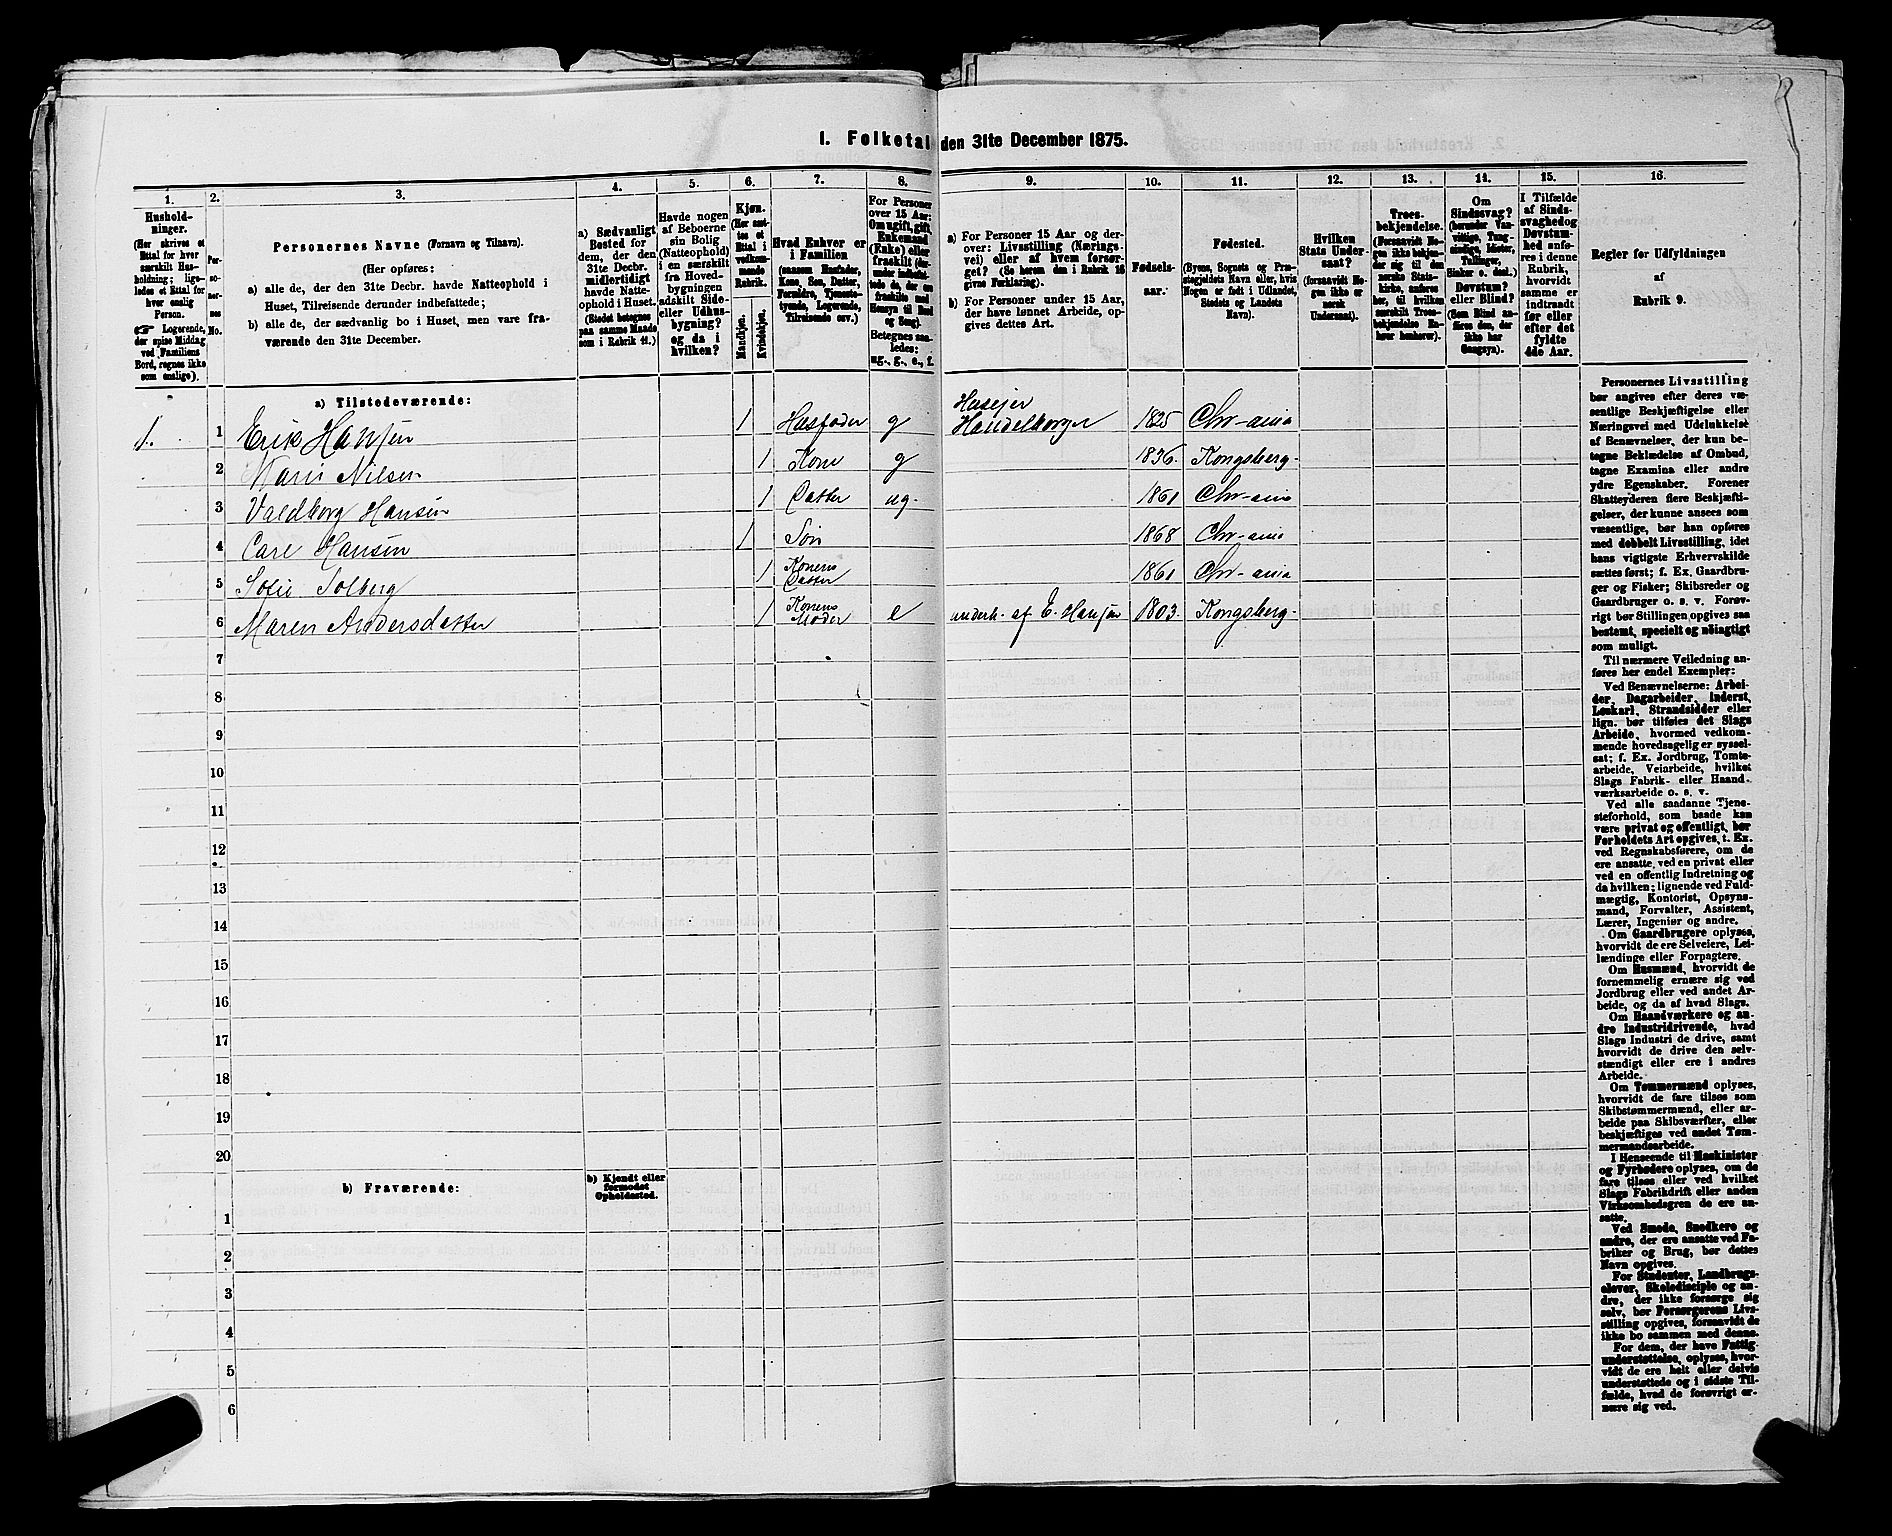 1. Folketal den 31te December 1875.
1. 2. 3. 4. 5. 6. 7. 8. 9. 10. 11. 12. 13. 14. 15. 16.
Husholdninger.
(Her skrives et Ettal for hver særskilt Husholdning; ligeledes et Ettal for hver enslig Person.
☞ Logerende, der spise Middag ved Familiens Bord, regnes ikke som enslige).
Personernes No.
Personernes Navne (Fornavn og Tilnavn).
(Her opføres:
a) alle de, der den 31te Decbr. havde Natteophold i
Huset, Tilreisende derunder indbefattede;
b) alle de, der sædvanlig bo i Huset, men vare fra-
værende den 31te December.
a) Sædvanligt
Bosted for
dem, der den
31te Decbr.
midlertidigt
havde Natte-
ophold i Huset.
(Stedet betegnes
paa samme Maade
som i Rubrik 11.)
Havde nogen
af Beboerne
sin Bolig
(Natteophold)
i en særskilt
fra Hoved-
bygningen
adskilt Side-
eller Udhus-
bygning?
og da i
hvilken?
Kjøn.
(Her sættes et Ettal i vedkommende Rubrik.
Mandkjøn.
Kvindekjøn.
Hvad Enhver er
i Familien
(saasom Husfader,
Kone, Søn, Datter,
Forældre, Tjeneste-
tyende, Logerende,
Tilreisende osv.)
For Personer
over 15 Aar:
Om ugift, gift,
Enkemand
(Enke) eller
fraskilt (der-
under indbefat-
tede de, der ere
fraskilte med
Hensyn til Bord
og Seng).
Betegnes saa-
ledes:
ug., g., e., f.
a) For Personer 15 Aar og der-
over: Livsstilling (Nærings-
vei) eller af hvem forsør-
get? (Se herom den i Rubrik 16
givne Forklaring).
b) For Personer under 15 Aar,
der have lønnet Arbeide, op-
gives dettes Art.
Fødsels-
aar.
Fødested.
(Byens, Sognets og Præ-
stegjeldets Navn eller, hvis
Nogen er født i Udlandet,
Stedets og Landets
Navn).
Hvilken
Stats Under-
saat?
(forsaavidt No-
gen ikke er
norsk
Undersaat).
Troes-
bekjendelse.
(Forsaavidt No-
gen ikke bekjen-
der sig til den
norske Stats-
kirke, anføres
her, til hvilken
særskilt Troes-
bekjendelse En-
hver henhører).
Om
Sindssvag?
(herunder Van-
vittige, Tung-
sindige, Idioter,
Tullinger,
Sinker o. desl.)
Døvstum?
eller Blind?
(Som Blind an-
føres den, der
ikke har
Gangsyn).
I Tilfælde
af Sinds-
svaghed og
Døvstum-
hed anfø-
res i denne
Rubrik,
hvorvidt
samme er
indtraadt
før eller
efter det
fyldte
4de Aar.
Regler for Udfyldningen
af
Rubrik 9.
a) Tilstedeværende:
1. 1 Erik Hansen 1 Husfader g Huseier Handelborger 1825 Chr-ania
2 Marie Nilsen 1 Kone g 1836. Kongsberg-
3 Valdborg Hansen 1 Datter ug. 1861 Chr-ania
4 Carl Hansen 1 Søn 1868 Chr-ania
5 Sofie Solberg 1 Konens Datter 1861 Chr-ania
6 Maren Andersdatter 1 Konens Moder e underh. af E. Hansen 1803. Kongsberg-
7
8
9
10
11
12
13
14
15
16
17
18
19
20
b) Fraværende:
b) Kjendt eller
formodet
Opholdssted.
1
2
3
4
5
6
Personernes Livsstilling
bør angives efter deres væ-
sentlige Beskjæftigelse eller
Næringsvei med Udelukkelse
af Benævnelser, der kun be-
tegne Beklædelse af Ombud,
tagne Examina eller andre
ydre Egenskaber. Forener
Skatteyderen flere Beskjæfti-
gelser, der kunne ansees som
væsentlige, bør han opføres
med dobbelt Livsstilling, idet
hans vigtigste Erhvervskilde
sættes først; f. Ex. Gaardbru-
ger og Fisker; Skibsreder og
Gaardbruger o. s. v. Forøv-
rigt bør Stillingen opgives saa
bestemt, specielt og nøiagtigt
som muligt.
Til nærmere Veiledning an-
føres her endel Exempler:
Ved Benævnelserne: Arbei-
der, Dagarbeider, Inderst,
Løskarl, Strandsidder eller
lign. bør tilføies det Slags
Arbeide, hvormed vedkom-
mende hovedsagelig er syssel-
sat; f. Ex. Jordbrug, Tomte-
arbeide, Veiarbeide, hvilket
Slags Fabrik- eller Haand-
værksarbeide o. s. v.
Ved alle saadanne Tjene-
steforhold, som baade kan
være privat og offentligt, bør
Forholdets Art opgives, t. Ex.
ved Regnskabsførere, om de
ere ansatte, ved en privat eller
ved en offentlig Indretning og
da hvilken; lignende ved Fuld-
mægtig, Kontorist, Opsyns-
mand, Forvalter, Assistent,
Lærer, Ingeniør og andre.
Om Gaardbrugere oplyses,
hvorvidt de ere Selveiere, Lei-
lændinge eller Forpagtere.
Om Husmænd, hvorvidt de
fornemmelig ernære sig ved
Jordbrug eller ved andet Ar-
beide, og da af hvad Slags.
Om Haandværkere og an-
dre Industridrivende, hvad
Slags Industri de drive, samt
hvorvidt de drive den selv-
stændigt eller ere i andres
Arbeide.
Om Tømmermænd oplyses,
hvorvidt de fare tilsøs som
Skibstømmermænd, eller ar-
beide paa Skibsværfter, eller
beskjæftiges ved andet Tøm-
mermandsarbeide.
I Henseende til Maskinister
og Fyrbødere oplyses, om de
fare tilsøs eller ved hvilket
Slags Fabrikdrift eller anden
Virksomhedsgren de ere an-
satte.
Ved Smede, Snedkere og
andre, der ere ansatte ved Fa-
briker og Brug, bør dettes
Navn opgives.
For Studenter, Landbrugs-
elever, Skoledisciple og an-
dre, der ikke forsørge sig
selv, bør Forsørgerens Livs-
stilling opgives, forsaavidt de
ikke bo sammen med denne.
For dem, der have Fattig-
understøttelse, oplyses, hvor-
vidt de ere helt eller delvis
understøttede og i sidste Til-
fælde, hvad de forøvrigt er-
nære sig ved.